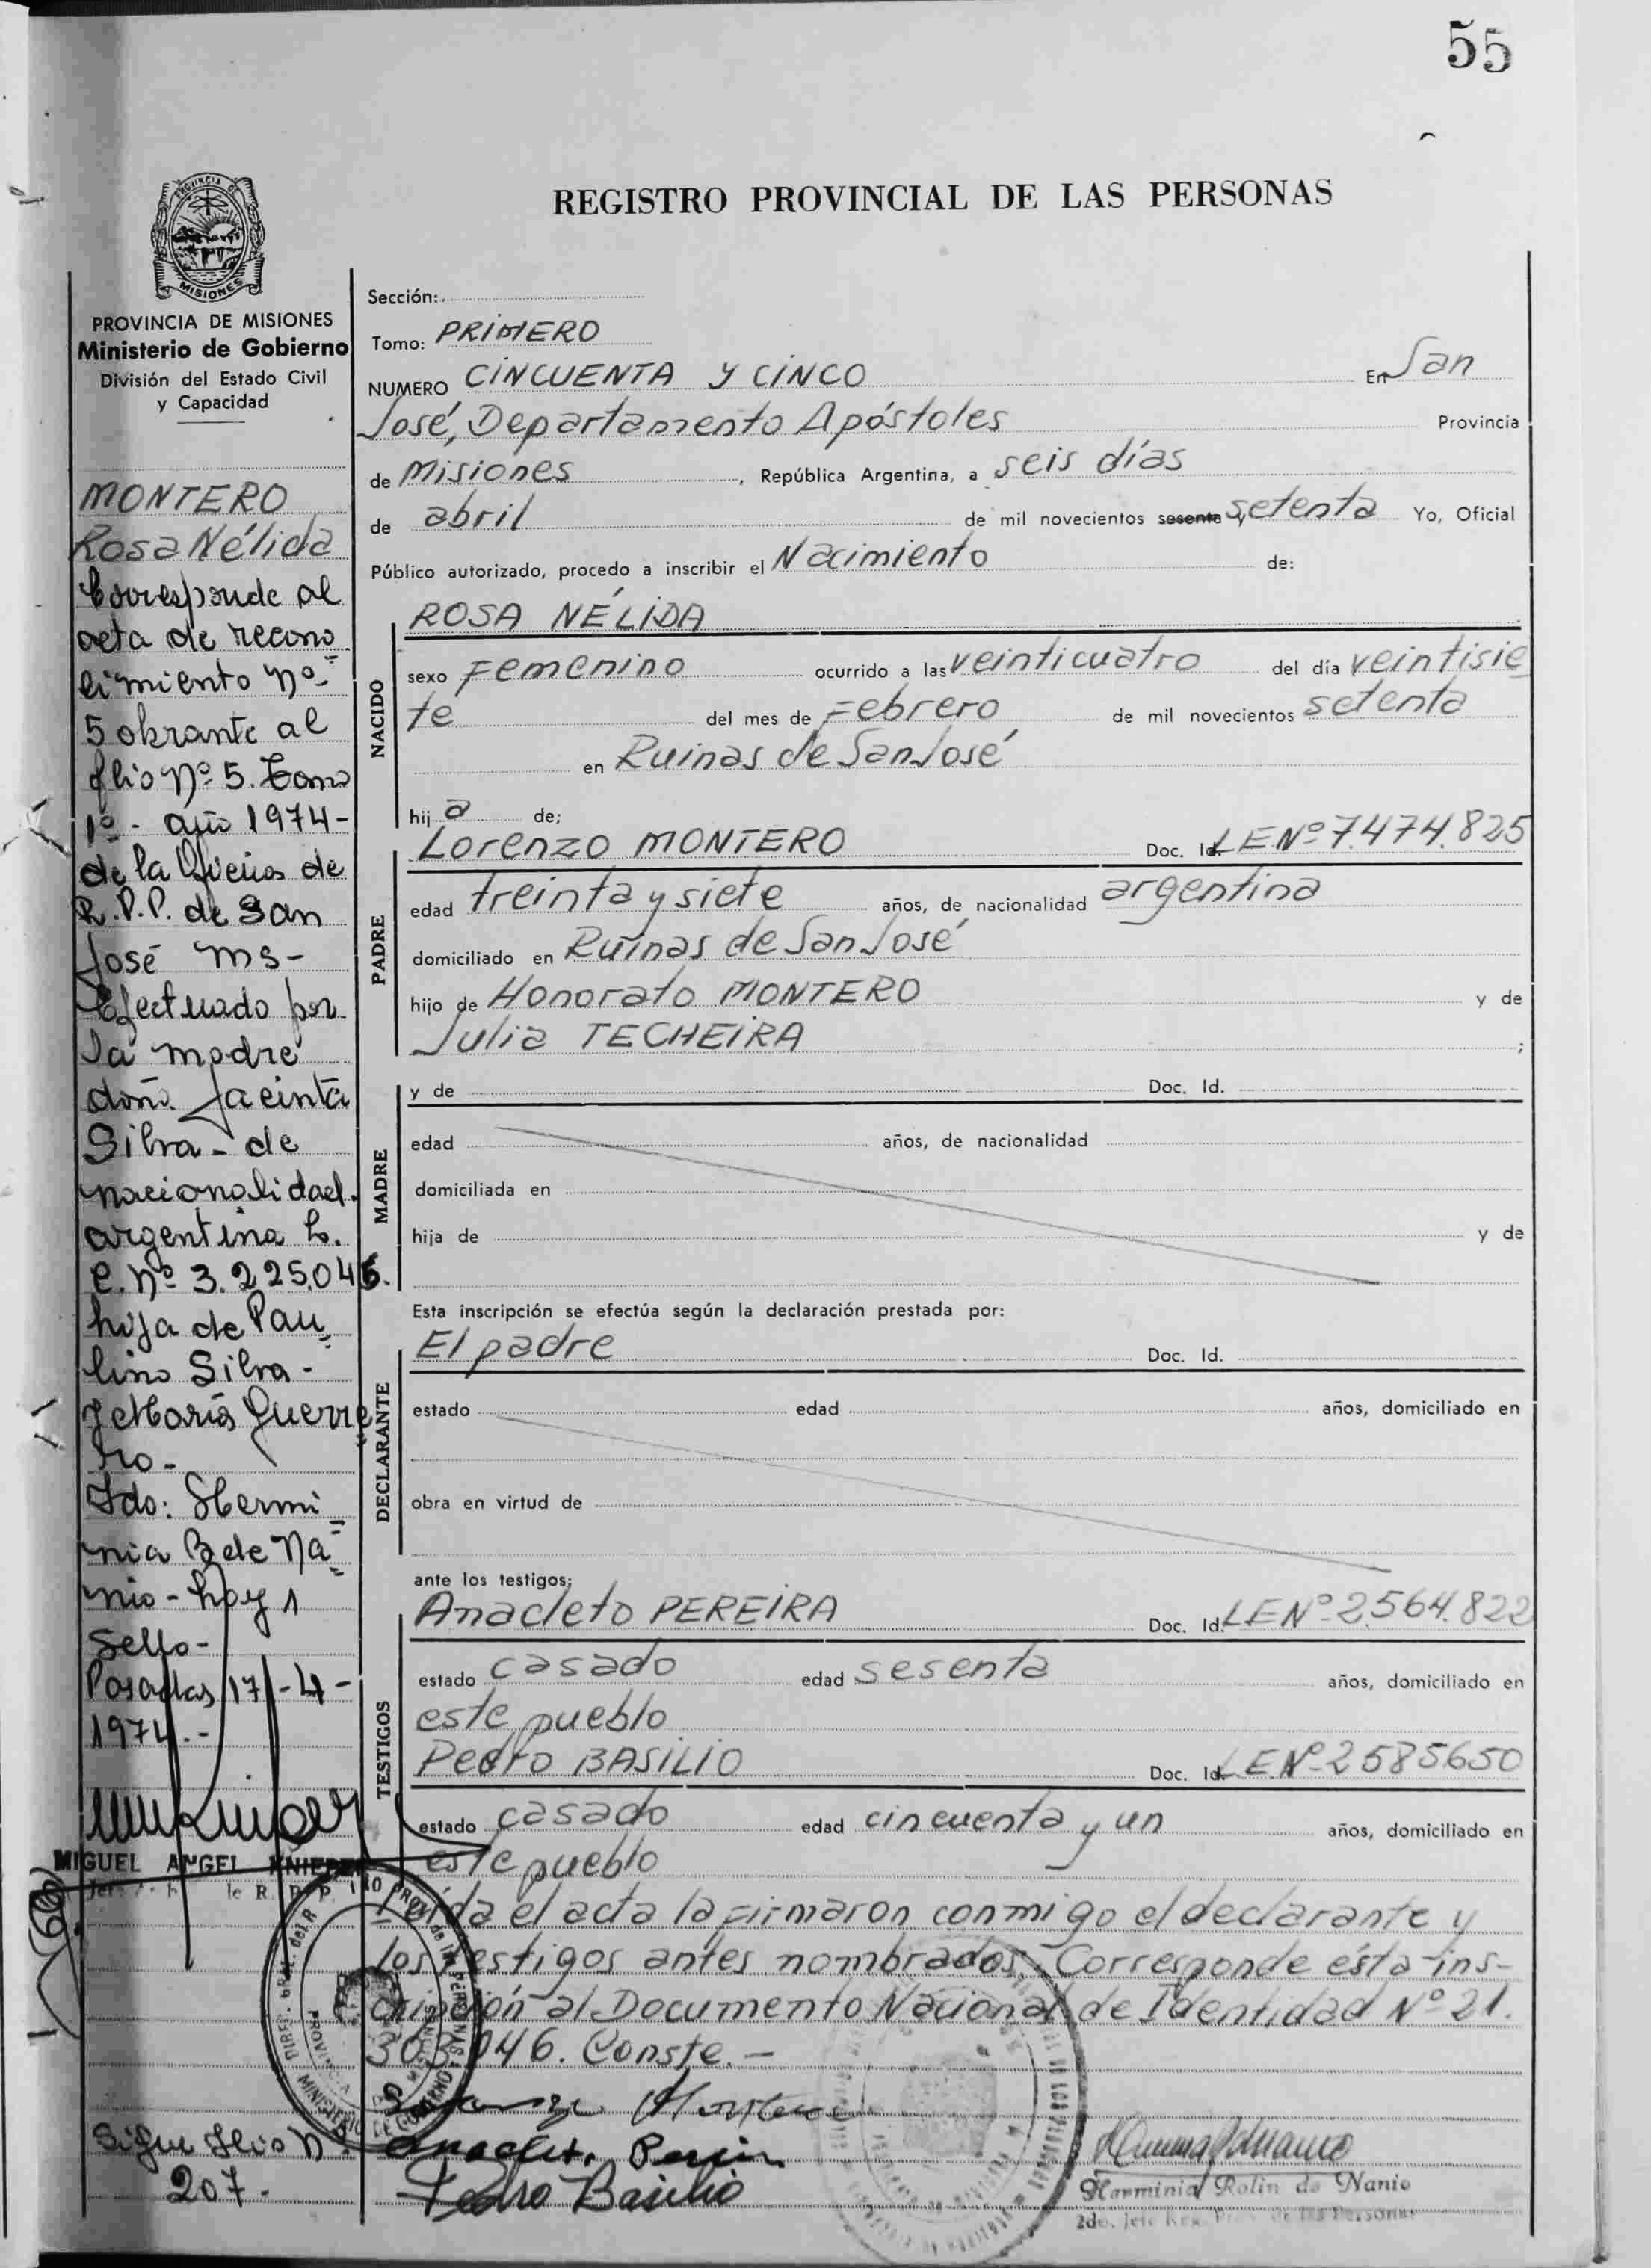 55
REGISTRO PROVINCIAL DE LAS PERSONAS
PROVINCIA DE
MISIONES
PROVINCIA DE MISIONES
Ministerio de Gobierno
División del Estado Civil
y Capacidad
MONTERO
Rosa Nélida
Corresponde al
acta de recono
cimiento nº
5 obrante al
flio nº 5. Tomo
1º - año 1974-
de la Oficina de
R.P.P. de San
José Ms-
Efectuado por
la madre
doña Jacinta
Silva - de
nacionalidad
argentina L.
C. nº 3.225.046.
hija de Pau
lino Silva -
y María Guerre
ro -
Fdo: Hermi
nia R de Na
nio - hay 1
Sello -
Posadas 17-4-
1974.-
MIGUEL ANGEL
Sigue flio nº
207.-
Sección:
Tomo: PRIMERO
NUMERO CINCUENTA Y CINCO En San
José, Departamento Apóstoles Provincia
de Misiones, República Argentina, a seis días
de abril de mil novecientos sesenta y setenta Yo, Oficial
Público autorizado, procedo a inscribir el Nacimiento de:
NACIDO
ROSA NÉLIDA
sexo Femenino ocurrido a las veinticuatro del día veintisie
te del mes de Febrero de mil novecientos setenta
en Ruinas de San José
hij a de;
PADRE
Lorenzo MONTERO Doc. Id. LE Nº 7.474.825
edad treinta y siete años, de nacionalidad argentina
domiciliado en Ruinas de San José
hijo de Honorato MONTERO y de
Julia TECHEIRA ;
MADRE
y de Doc. Id.
edad años, de nacionalidad
domiciliada en
hija de y de
Esta inscripción se efectúa según la declaración prestada por:
DECLARANTE
El padre Doc. Id.
estado edad años, domiciliado en
obra en virtud de
ante los testigos;
TESTIGOS
Anacleto PEREIRA Doc. Id. LE Nº 2.564.822
estado casado edad sesenta años, domiciliado en
este pueblo
Pedro BASILIO Doc. Id. LE Nº 2585650
estado casado edad cincuenta y un años, domiciliado en
este pueblo
Leída el acta la firmaron conmigo el declarante y
los testigos antes nombrados. Corresponde ésta ins-
cripción al Documento Nacional de Identidad Nº 21.
303.046. Conste.-
Pedro Basilio
Herminia Rolin de Nanio